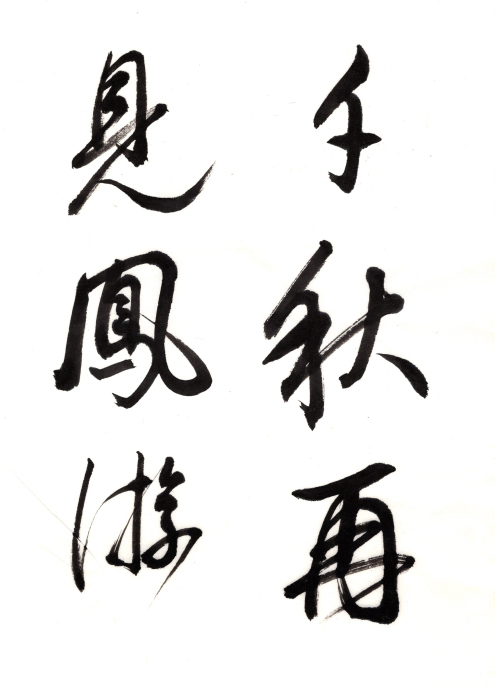 千秋再
見鳳游